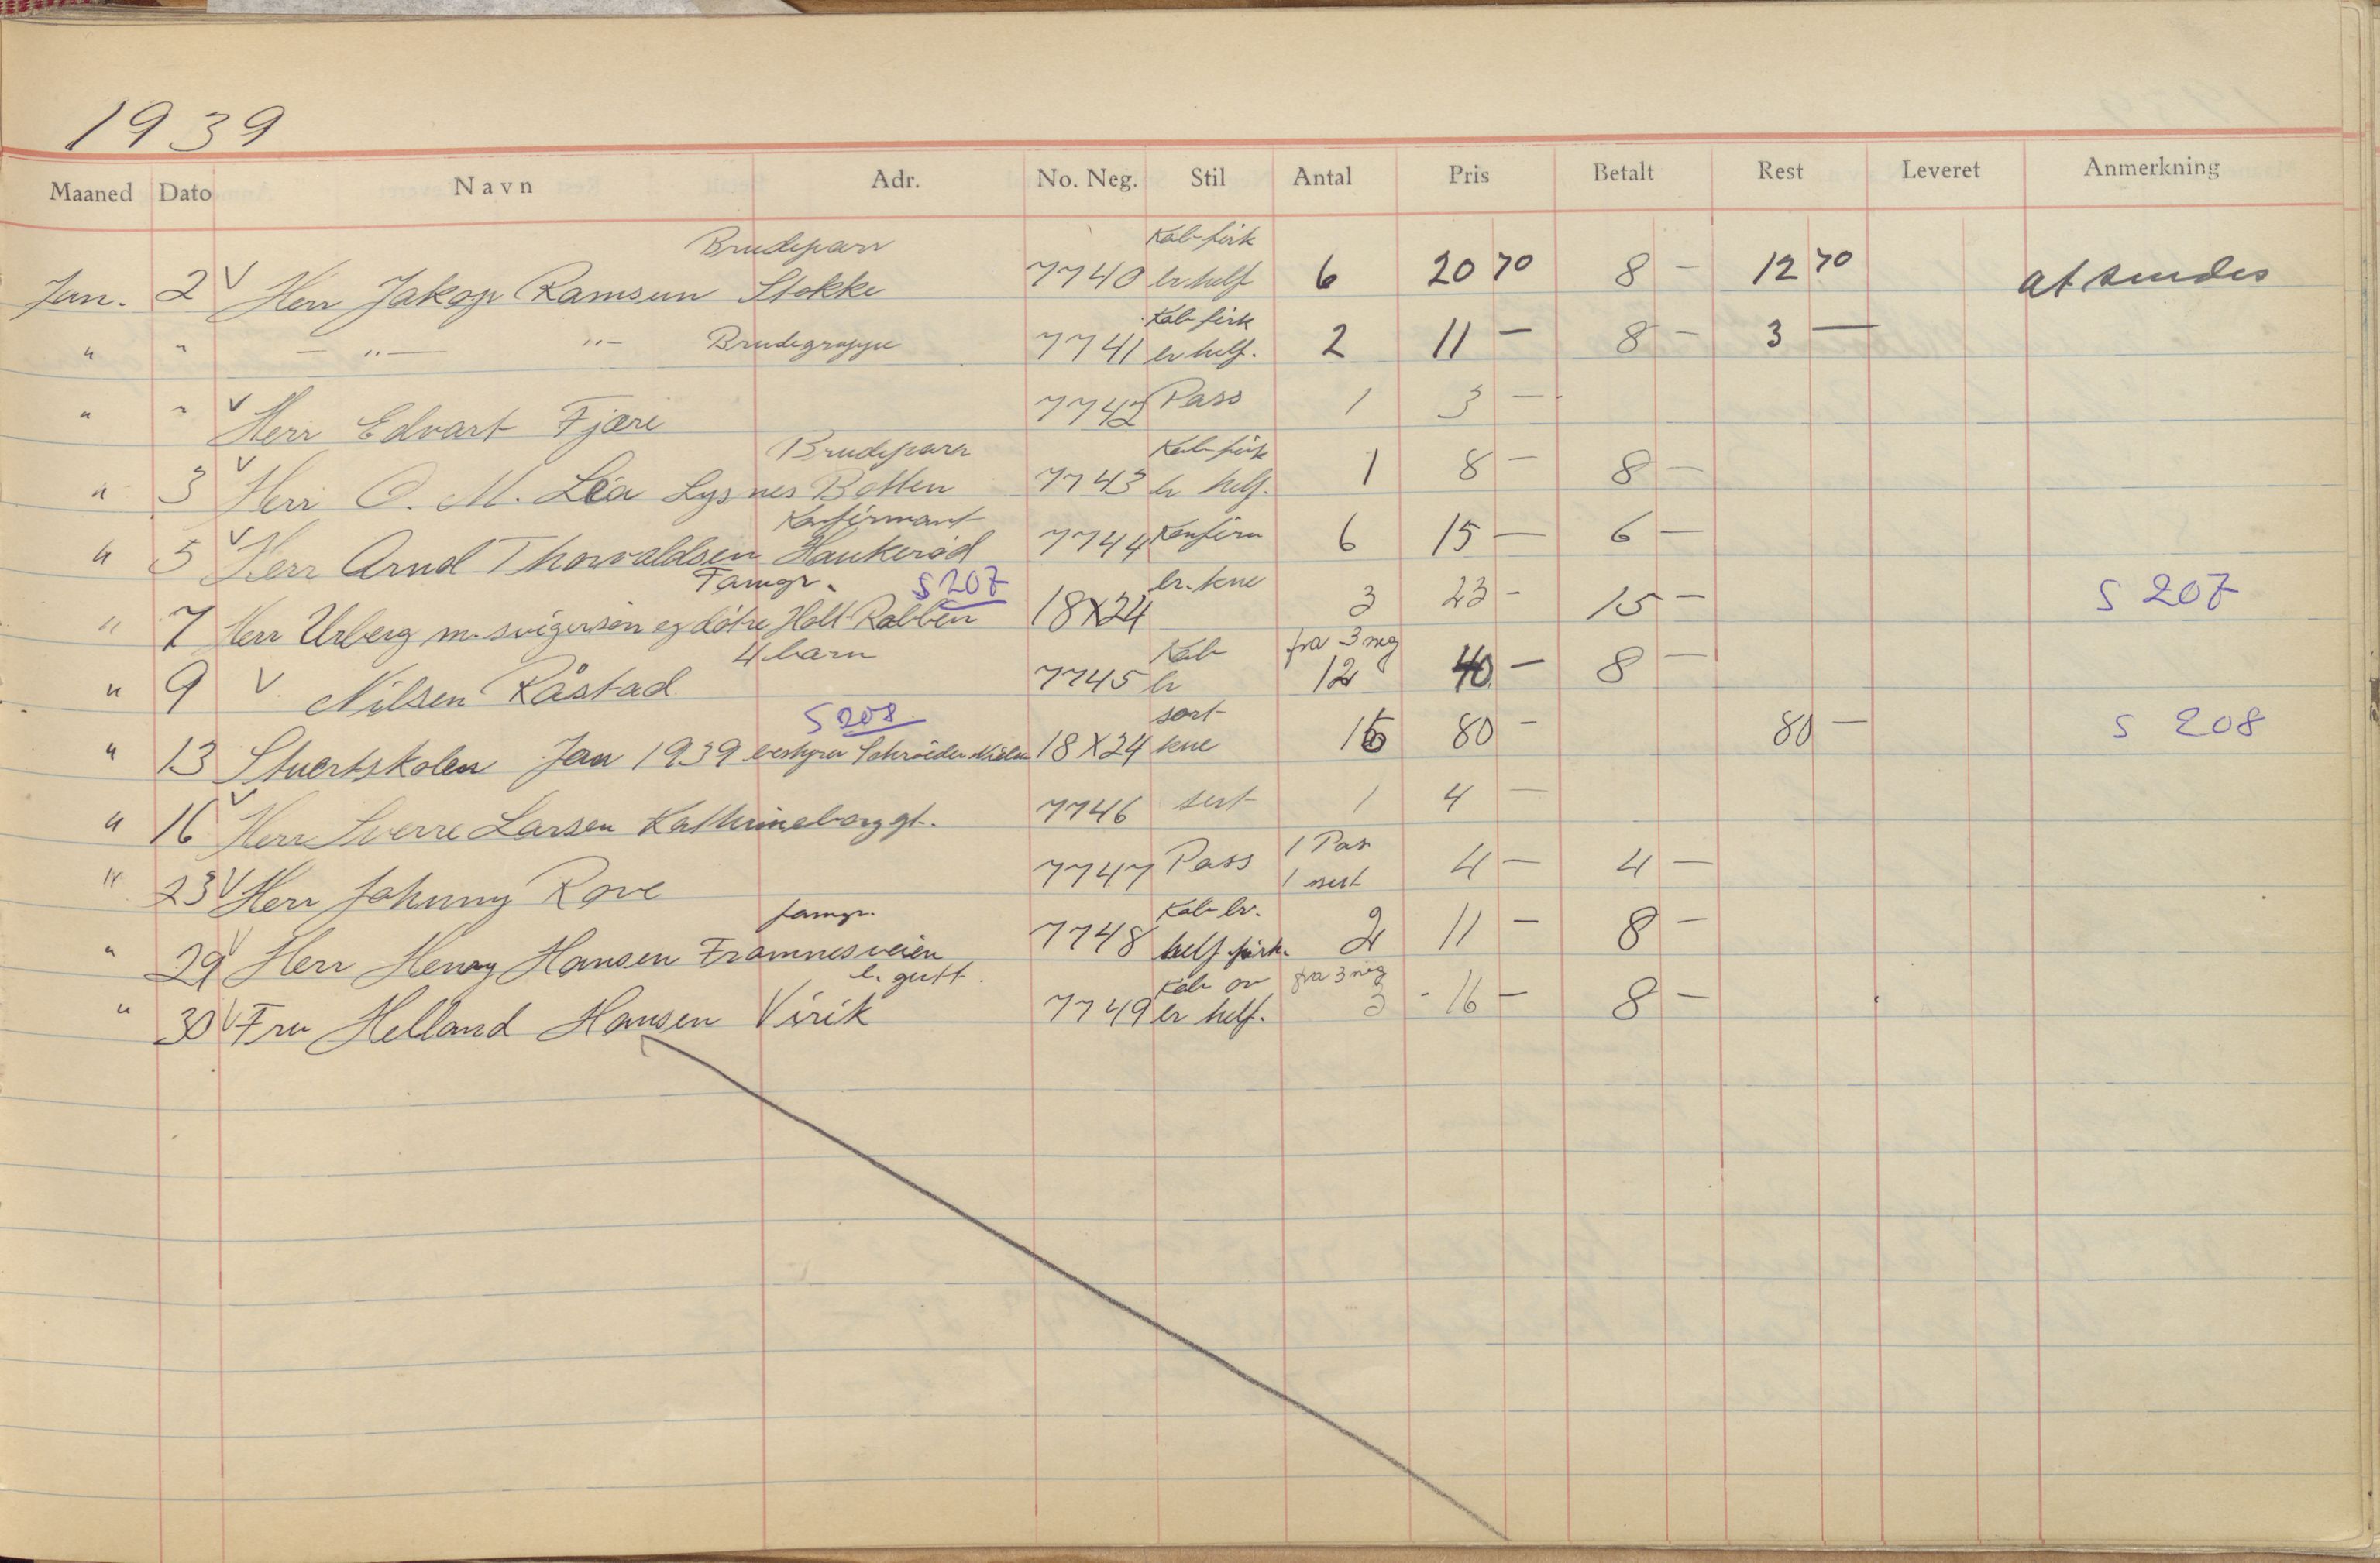 1939
Maaned Dato Navn Adr. No. Neg. Stil Antal Pris Betalt Rest Leveret Anmerkning
Brudeparr Kab-firk
Jan. 2 V Herr Jakop Ramsun Stokke 7740 br helf 6 20 70 8 - 12 70 at sendes
Kab-firk
" " - " - " - Brudegruppe 7741 br helf. 2 11 - 8 - 3 -
" " V Herr Edvart Fjære 7742 Pass 1 3 -
Brudeparr Kab-firk
" 3 V Herr O. M. Lea Lysnes Botten 7743 br helf. 1 8 - 8 -
Konfirmant
" 5 V Herr Arnd Thorvaldsen Haukerød 7744 Konfirm 6 15 - 6 -
Famgr. S 207 br. kne
" 7 Herr Urberg m. svigersøn og døtre Holt Rabben 18X24 3 23 - 15 - S 207
4 barn Kab fra 3 neg
" 9 V Nilsen Råstad 7745 br 12 40 - 8 -
S 208 sort
" 13 Stuertskolen Jan 1939 bestyrer Schrøder Nielsen 18X24 kne 16 80 - 80 - S 208
" 16 V Herr Sverre Larsen Kathrineborggt. 7746 sort 1 4 -
1 Pas
" 23 V Herr Johnny Rove 7747 Pass 1 sort 4 - 4 -
famgr. Kab br.
" 29 V Herr Henry Hansen Framnesveien 7748 helf firk. 2 11 - 8 -
l. gutt. Kab ov fra 3 neg
" 30 V Fru Helland Hansen Virik 7749 br helf. 3 - 16 - 8 -